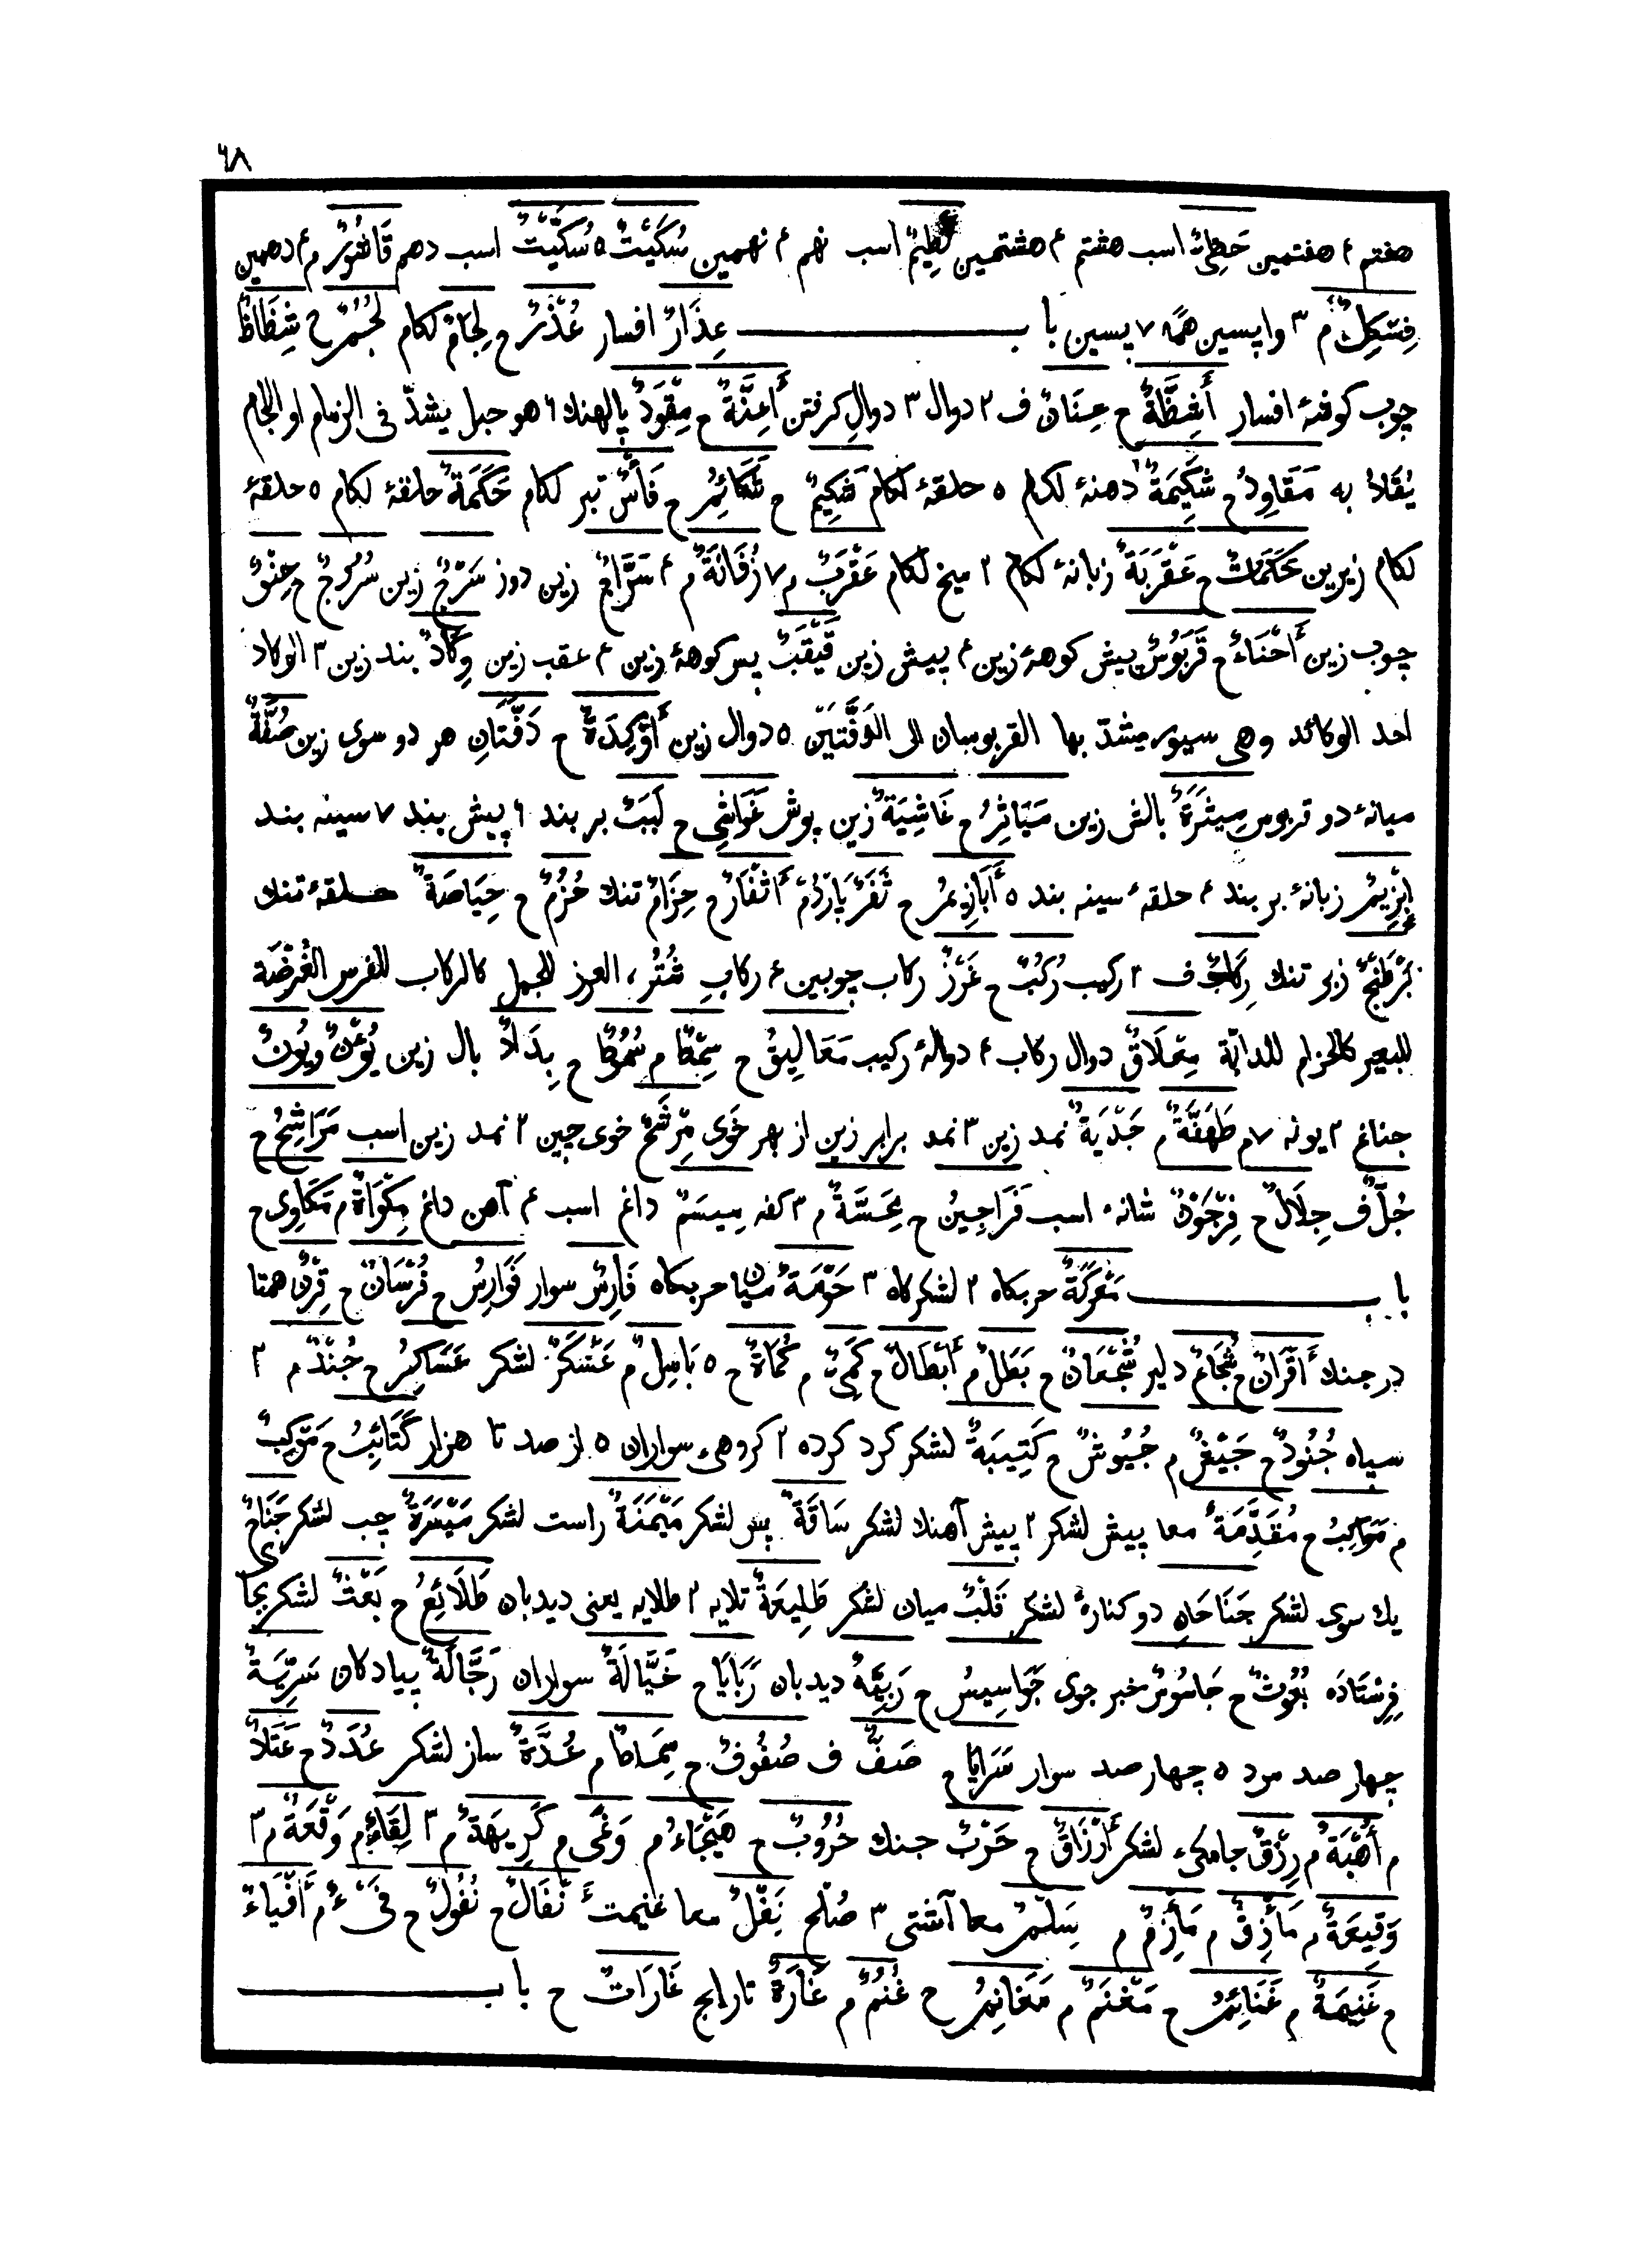 ۶۸
هفتم ۴ هفتمین حَظِیٌّ اسب هشتم ۴ هشتمین لَطِیمٌ اسب نهم ۴ نهمین سُکَیْتٌ ۵ سُکَّیْتٌ اسب دهم قَاشُورٌ م ۴ دهمین
فِسْکِلٌ م ۳ واپسین همه ۷ پسین باب عِذَارٌ افسار عُذُرٌ ح لِجَامٌ لکام لُجُمٌ ح شِظَاظٌ
چوب کوشهٔ افسار أَشِظَّةٌ ح عِنَانٌ ف ۲ دوال ۳ دوالِ کرفتن أَعِنَّةٌ ح مِقْوَدٌ پالهنك ۶ هو حبل یشدّ فی الزمام او اللجام
یُقَادُ به مَقَاوِدُ ح شَکِیمَةٌ دهنهٔ لکام ۵ حلقهٔ لکام شَکِیمٌ ح شَکَائِمُ ح فَأْسٌ تبر لکام حَکَمَةٌ حلقهٔ لکام ۵ حلقهٔ
لکام زیرین حَکَمَاتٌ ح عَقْرَبَةٌ زبانهٔ لکام ۲ میخ لکام عَقْرَبٌ م ۷ زُفَانَةٌ م ۴ سَرَّاجٌ زین دوز سَرْجٌ زین سُرُوجٌ ح حِنْوٌ
چوب زین أَحْنَاءٌ ح قَرَبُوسٌ پیش کوههٔ زین ۴ پیش زین قَیْقَبٌ پس کوههٔ زین ۴ عقب زین وِکَادٌ بند زین ۳ الوکاد
احد الوکائد وهی سیور یشدّ بها القربوسان الی الدَفَّتَیْن ۵ دوال زین أَوْکِدَةٌ ح دَفَّتَانِ هر دو سوی زین صُفَّةٌ
میانهٔ دو قربوس مِیثَرَةٌ بالش زین مَیَاثِرُ ح غَاشِیَةٌ زین پوش غَوَاشِی ح لَبَبٌ بر بند ۶ پیش بند ۷ سینه بند
إِبْزِیمٌ زبانهٔ بر بند ۴ حلقهٔ سینه بند ۵ أَبَازِیمُ ح ثَفَرٌ پَارْدُمْ أَثْفَارٌ ح حِزَامٌ تنك حُزُمٌ ح حِیَاصَةٌ حلقهٔ تنك
زبر تنك رِکَابٌ ف ۲ رکیب رُکُبٌ ح غَرْزٌ رکاب چوبین ۴ رکابِ شُتُر، الغرز للجمل کالرکاب للفرس الغُرْضَة
للبعیر کالحزام للدابّة مِعْلَاقٌ دوال رکاب ۴ دوالهٔ رکیب مَعَالِیقُ ح سِمْطٌ م سُمُوطٌ ح بِدَادٌ بال زین
جناغ ۲ یونه ۷ م م جَدْیَةٌ نمد زین ۳ نمد برابر زین از بهر خَوَی مِرْشَحٌ خوی چین ۲ نمد زین اسب مَرَاشِحُ ح
جُلٌّ ف جِلَالٌ ح فِرْجَوْنٌ شانهٔ اسب فَرَاجِینُ ح مِحَسَّةٌ م ۳ کفه مِیسَمٌ داغ اسب ۴ آهن داغ مِکْوَاةٌ م مَکَاوِی ح
باب مَعْرَکَةٌ حربکاه ۲ لشکرکاه ۳ حَوْمَةٌ میان حربکاه فَارِسٌ سوار فَوَارِسُ ح فُرْسَانٌ ح قِرْنٌ همتا
در جنك أَقْرَانٌ ح شُجَاعٌ دلیر شُجْعَانٌ ح بَطَلٌ م أَبْطَالٌ ح کَمِیٌّ م کُمَاةٌ ح ۵ بَاسِلٌ م عَسْکَرٌ لشکر عَسَاکِرُ ح جُنْدٌ م ۲
سپاه جُنُودٌ ح جَیْشٌ م جُیُوشٌ ح کَتِیبَةٌ لشکر کرد کرده ۲ کروهیء سواران ۵ از صد تا هزار کَتَائِبُ ح مَوْکِبٌ
م مَوَاکِبُ ح مُقَدِّمَةٌ معا پیش لشکر ۲ پیش آهنك لشکر سَاقَةٌ پس لشکر مَیْمَنَةٌ راست لشکر مَیْسَرَةٌ چب لشکر جَنَاحٌ
یك سوی لشکر جَنَاحَانِ دو کنارهٔ لشکر قَلْبٌ میان لشکر طَلِیعَةٌ تلایه ۲ طلایه یعنی دیدبان طَلَائِعُ ح بَعْثٌ لشکر بجا
فِرِسْتَادَه بُعُوثٌ ح جَاسُوسٌ خبر جوی جَوَاسِیسُ ح رَبِیئَةٌ دیدبان رَبَایَا ح خَیَّالَةٌ سواران رَجَّالَةٌ پیادکان سَرِیَّةٌ
چهار صد مرد ۵ چهار صد سوار سَرَایَا ح صَفٌّ ف صُفُوفٌ ح سِمَاطٌ م عُدَّةٌ ساز لشکر عُدَدٌ ح عَتَادٌ
م أُهْبَةٌ م رِزْقٌ جامکیء لشکر أَرْزَاقٌ ح حَرْبٌ جنك حُرُوبٌ ح هَیْجَاءُ م وَغًی م کَرِیهَةٌ م ۳ لِقَاءٌ م وَقْعَةٌ م ۳
وَقِیعَةٌ م مَأْزِقٌ م مَأْزِمٌ م سَِلْمٌ معا آشتی ۳ صُلْح نَفْلٌ معا غنیمت أَنْفَالٌ ح نُفُولٌ ح فَیْءٌ م أَفْیَاءٌ
ح غَنِیمَةٌ م غَنَائِمُ ح مَغْنَمٌ م مَغَانِمُ ح غُنْمٌ م غَارَةٌ تاراج غَارَاتٌ ح باب